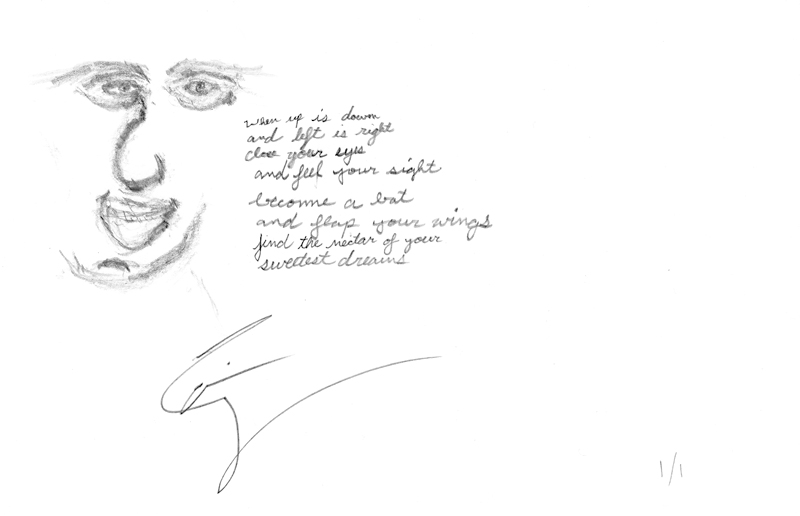 when up is down
and left is right
close your eyes
and feel your sight
become a bat
and flap your wings
find the nectar of your
sweetest dreams
1/1